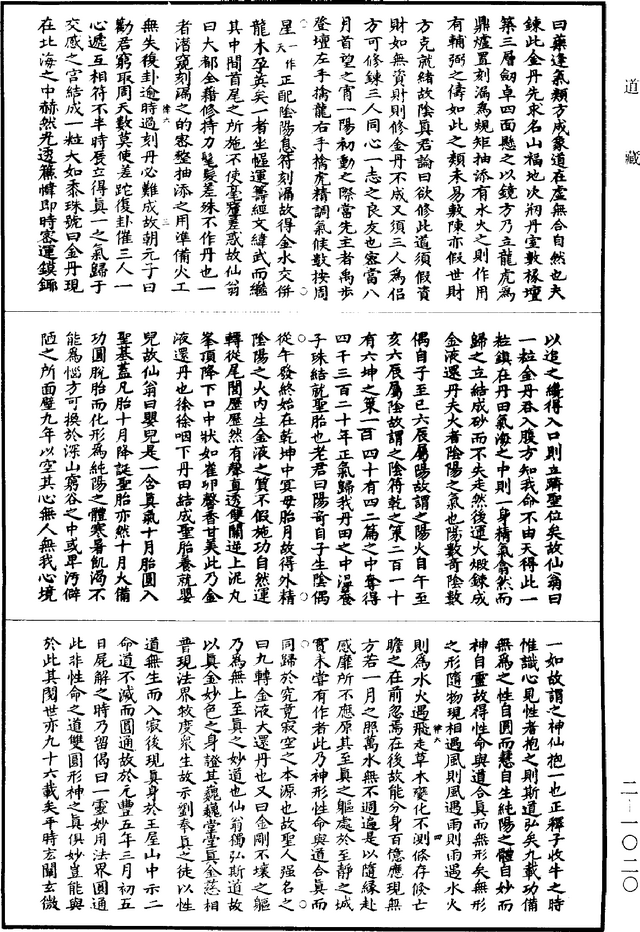 曰藥逢氣類方成象道在虛無合自然也夫
鍊此金丹先求名山福地次剏丹室數椽壇
築三層劒卓四面懸之以鏡方乃立龍虎為
鼎爐置刻漏為規矩抽添有水火之則作用
有輔弼之儔如此之類未易數陳亦假世財
方克就緒故陰真君論曰欲修此道須假資
財如無資財則修金丹不成又須三人為侶
方可修鍊三人同心一志之良友也密當八
月首望之宵一陽初動之際當先主者禹步
登壇左手擒龍右手擒虎精調氣候數按周
星一作天正配陰陽息符刻漏故得金水交併
龍木孕英矣一者坐幄運籌經文緯武而繼
其中間首尾之所施不使毫釐差惑故仙翁
曰大都全藉修持力毫髮差殊不作丹也一
者潛窺刻漏之的密整抽添之用準備火工
無失複卦逾時過刻丹必難成故朝元子曰
勸君窮取周天數莫使差跎復卦催三人一
心遞互相符不半時辰立得真一之氣歸于
交感之宮結成一粒大如黍珠號曰金丹現
在北海之中赫然光透簾幃即時密運鏌鎁
以追之纔得入口則立躋聖位矣故仙翁曰
一粒金丹吞入腹方知我命不由天得此一
粒鎮在丹田氣海之中則一身精氣翕然而
歸之立結成砂而不失走然後運火煅鍊成
金液還丹夫火者陰陽之氣也陽數奇陰數
偶自子至巳六辰屬陽故謂之陽火自午至
亥六辰屬陰故謂之陰符乾之策二百一十
有六坤之策一百四十有四二篇之中奪得
四千三百二十年正氣歸我丹田之中溫養
子珠結就聖胎也老君曰陽奇自子生陰偶
從午發終始在乾坤中冥毋胎月故得外精
陰陽之火內生金液之質不假施功自然運
轉從尾閭歷歷然有聲直透雙關逆上泥丸
峯頂降下口中狀如雀卵馨香甘美此乃金
液還丹也徐徐咽下丹田結成聖胎養就嬰
兒故仙翁曰嬰兒是一含真氣十月胎圓入
聖基蓋凡胎十月降誕聖胎亦然十月火備
功圓脫胎而化形為純陽之體寒暑飢渴不
能為惱方可換於深山窮谷之中或卑汚僻
陋之所面壁九年以空其心無人無我心境
一如故謂之神仙抱一也正釋子收牛之時
惟識心見性者抱之則斯道弘矣九載功備
無為之性自圓而慧自生純陽之體自妙而
神自靈故得性命與道合真而無形矣無形
之形隨物現相遇風則風遇雨則雨遇水火
則為水火遇飛走草木變化不測修存倏亡
瞻之在前忽焉在後故能分身百億應現無
方若一月之照萬水無不週遍是以隨緣赴
感靡所不應原其至真之軀處於至靜之域
實未嘗有作者此乃神形性命與道合真而
同歸於究竟寂空之本源也故聖人強名之
曰九轉金液大還丹也又曰金剛不壞之軀
乃為無上至真之妙道也仙翁獨弘斯道故
以真金妙色之身證其巍巍堂堂真金然相
普現法界救度衆生故示劉奉真之徒以性
道無生而入寂後現真身於王屋山中示二
命道不滅而圓通故於元豐五年三月初五
日尸解之時乃留偈曰一靈妙用法界圓通
此非性命之道雙圓形神之真俱妙豈能與
於此其閱世亦九十六載矣平時玄關玄微
道藏
二一〇二〇